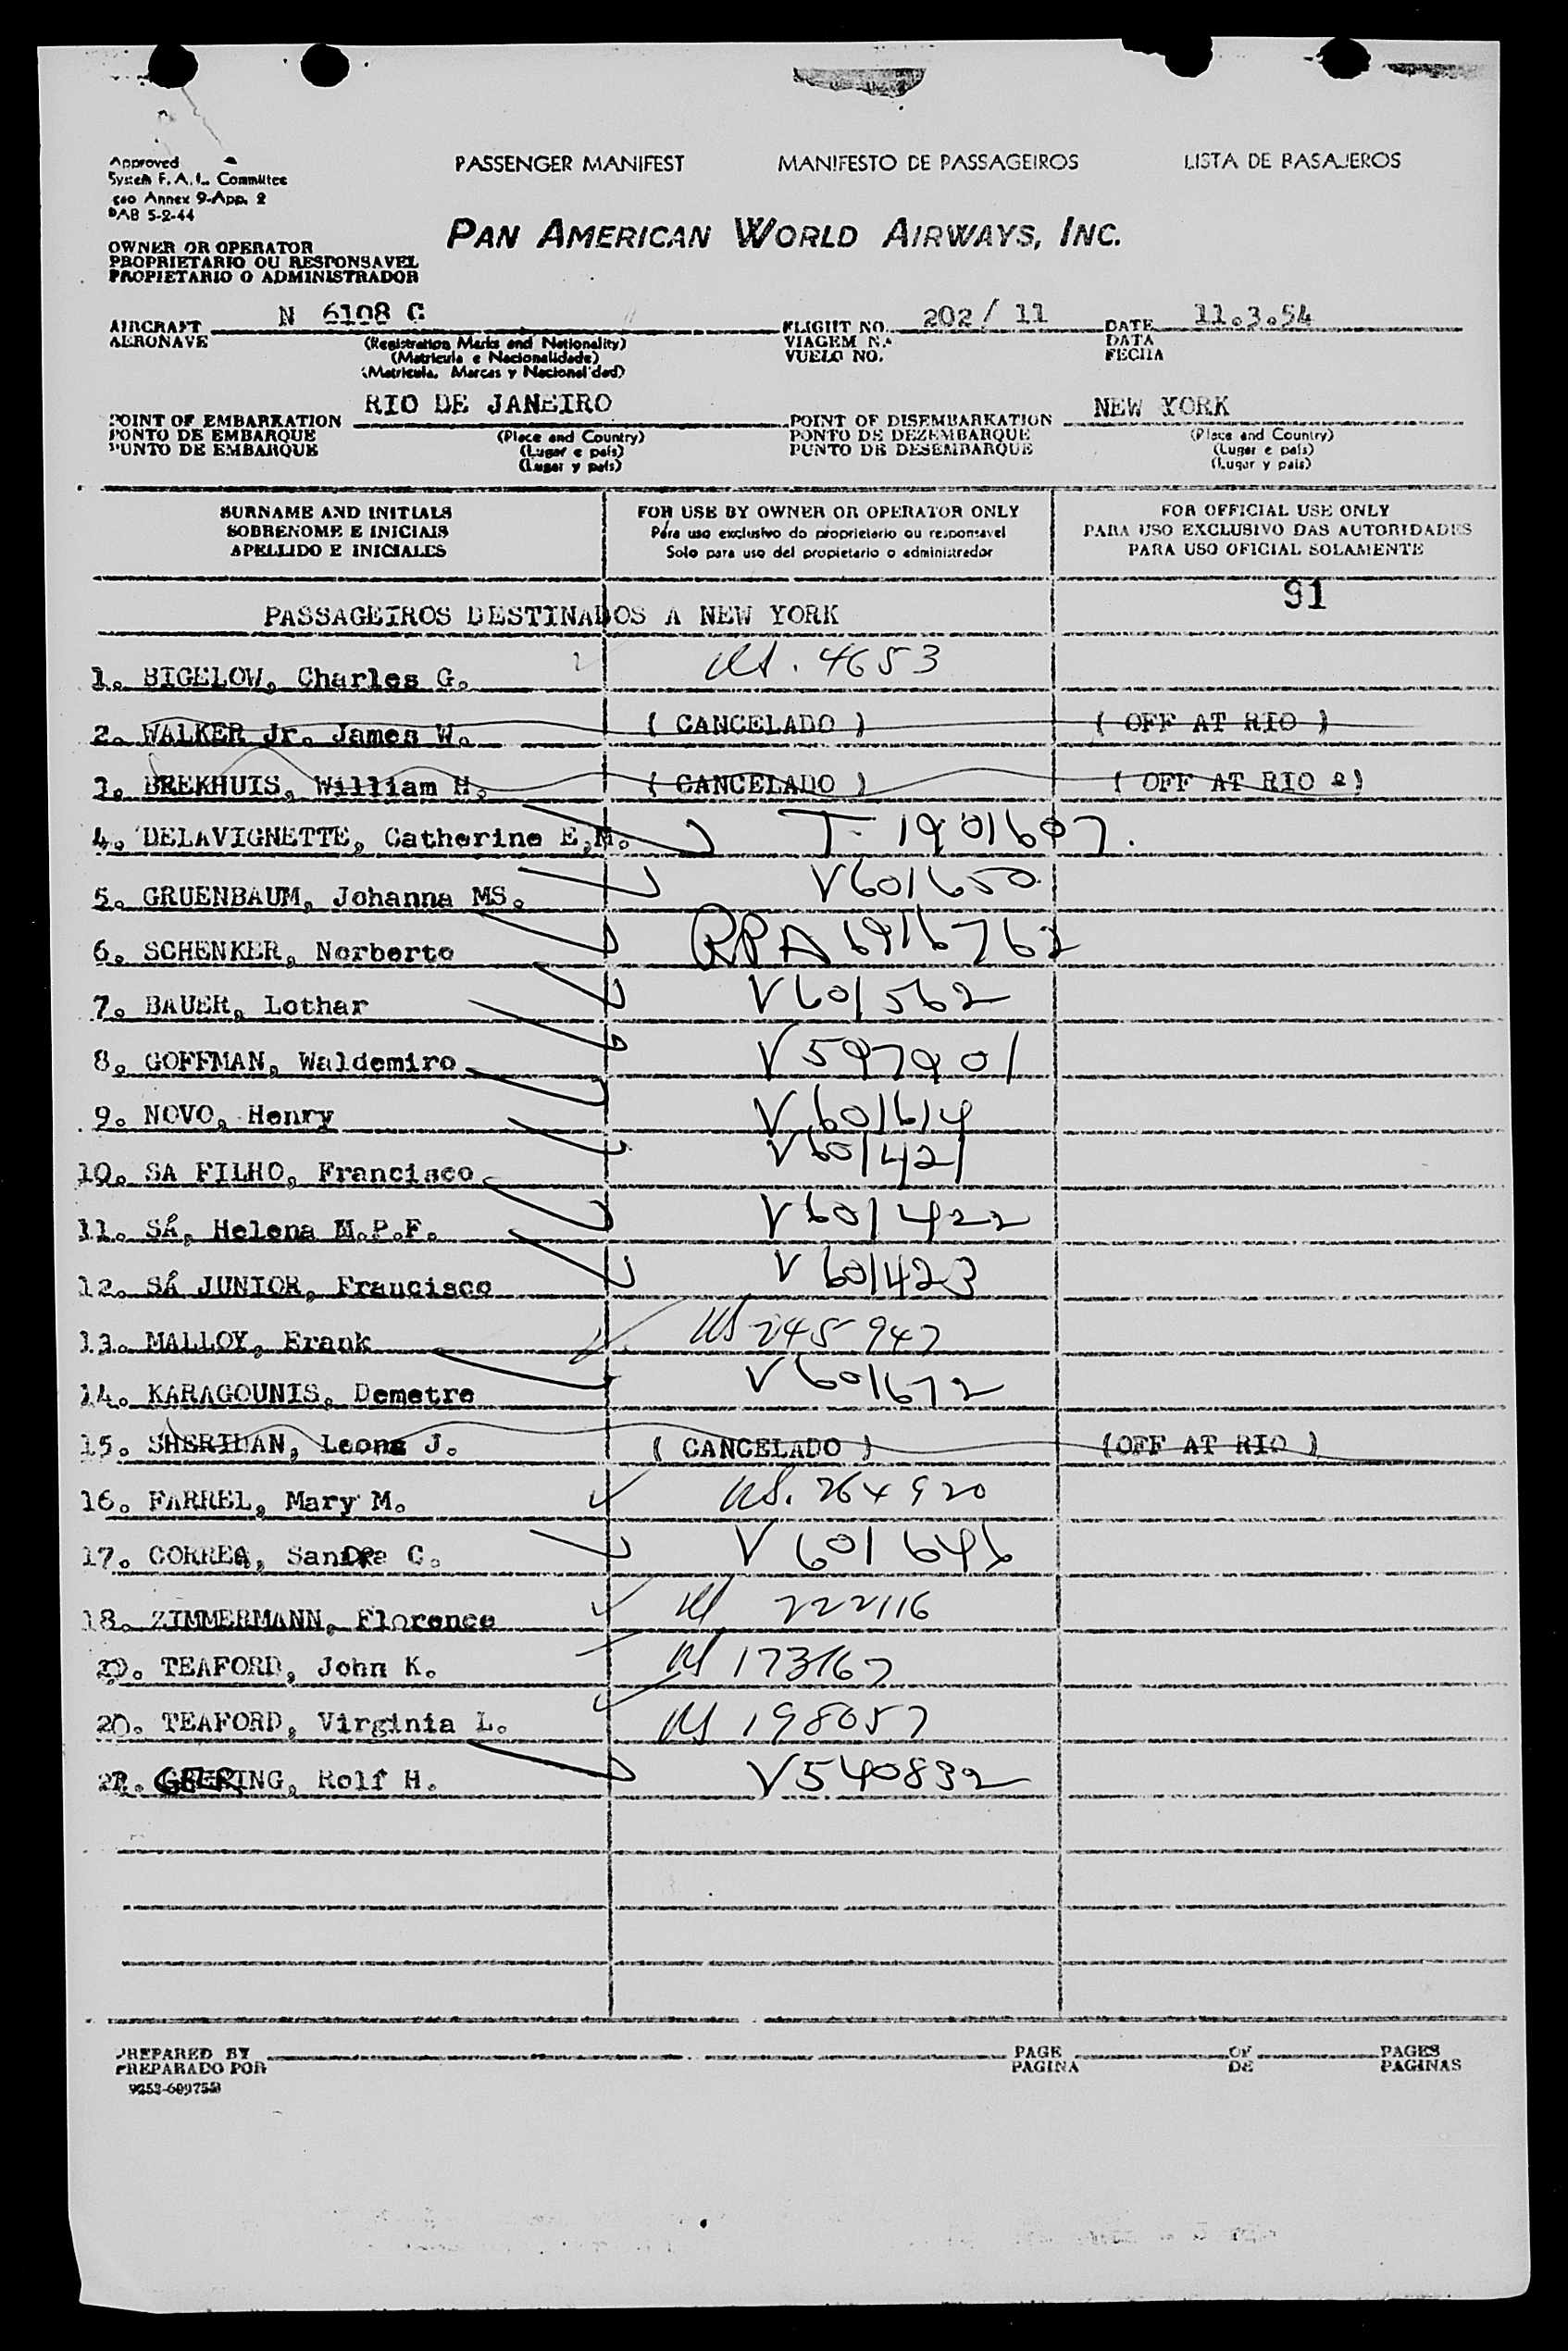 Approved
System F. A. L. Committee
cao Annex 9-App. 2
DAB 5-2-44
PASSENGER MANIFEST MANIFESTO DE PASSAGEIROS LISTA DE PASAJEROS
PAN AMERICAN WORLD AIRWAYS, INC.
OWNER OR OPERATOR
PROPRIETARIO OU RESPONSAVEL
PROPIETARIO O ADMINISTRADOR
AIRCRAFT N 6108 C FLIGHT NO. 202/ 11 DATE 11.3.54
AERONAVE (Registration Marks and Nationality) VIAGEM N.º DATA
(Matricula e Nacionalidade) VUELO NO. FECHA
(Matricula. Marcas y Nacionalidad)
POINT OF EMBARKATION RIO DE JANEIRO POINT OF DISEMBARKATION NEW YORK
PONTO DE EMBARQUE (Place and Country) PONTO DE DEZEMBARQUE (Place and Country)
PUNTO DE EMBARQUE (Lugar e pais) PUNTO DE DESEMBARQUE (Lugar e pais)
(Lugar y pais) (Lugar y pais)
SURNAME AND INITIALS FOR USE BY OWNER OR OPERATOR ONLY FOR OFFICIAL USE ONLY
SOBRENOME E INICIAIS Para uso exclusivo do proprietario ou responsavel PARA USO EXCLUSIVO DAS AUTORIDADES
APELLIDO E INICIALES Solo para uso del propietario o administrador PARA USO OFICIAL SOLAMENTE
PASSAGEIROS DESTINADOS A NEW YORK 91
1. BIGELOW, Charles G. US. 4653
2. WALKER Jr. James W. ( CANCELADO ) ( OFF AT RIO )
3. BREKHUIS, William H. ( CANCELADO ) ( OFF AT RIO )
4. DELAVIGNETTE, Catherine E.M. T- 1901607.
5. GRUENBAUM, Johanna MS. V601650
6. SCHENKER, Norberto RPA 6916762
7. BAUER, Lothar V601562
8. GOFFMAN, Waldemiro V597901
9. NOVO, Henry V601614
10. SA FILHO, Francisco V601421
11. SÁ, Helena M.P.F. V601422
12. SÁ JUNIOR, Francisco V601423
13. MALLOY, Frank US 245947
14. KARAGOUNIS, Demetre V601672
15. SHERIDAN, Leona J. ( CANCELADO ) (OFF AT RIO )
16. FARREL, Mary M. US. 264920
17. CORREA, Sandra C. V 601646
18. ZIMMERMANN, Florence US 222116
TEAFORD, John K. US 173167
20. TEAFORD, Virginia L. US 198057
GEERING, Rolf H. V540832
PREPARED BY PAGE OF PAGES
PREPARADO POR PAGINA DE PAGINAS